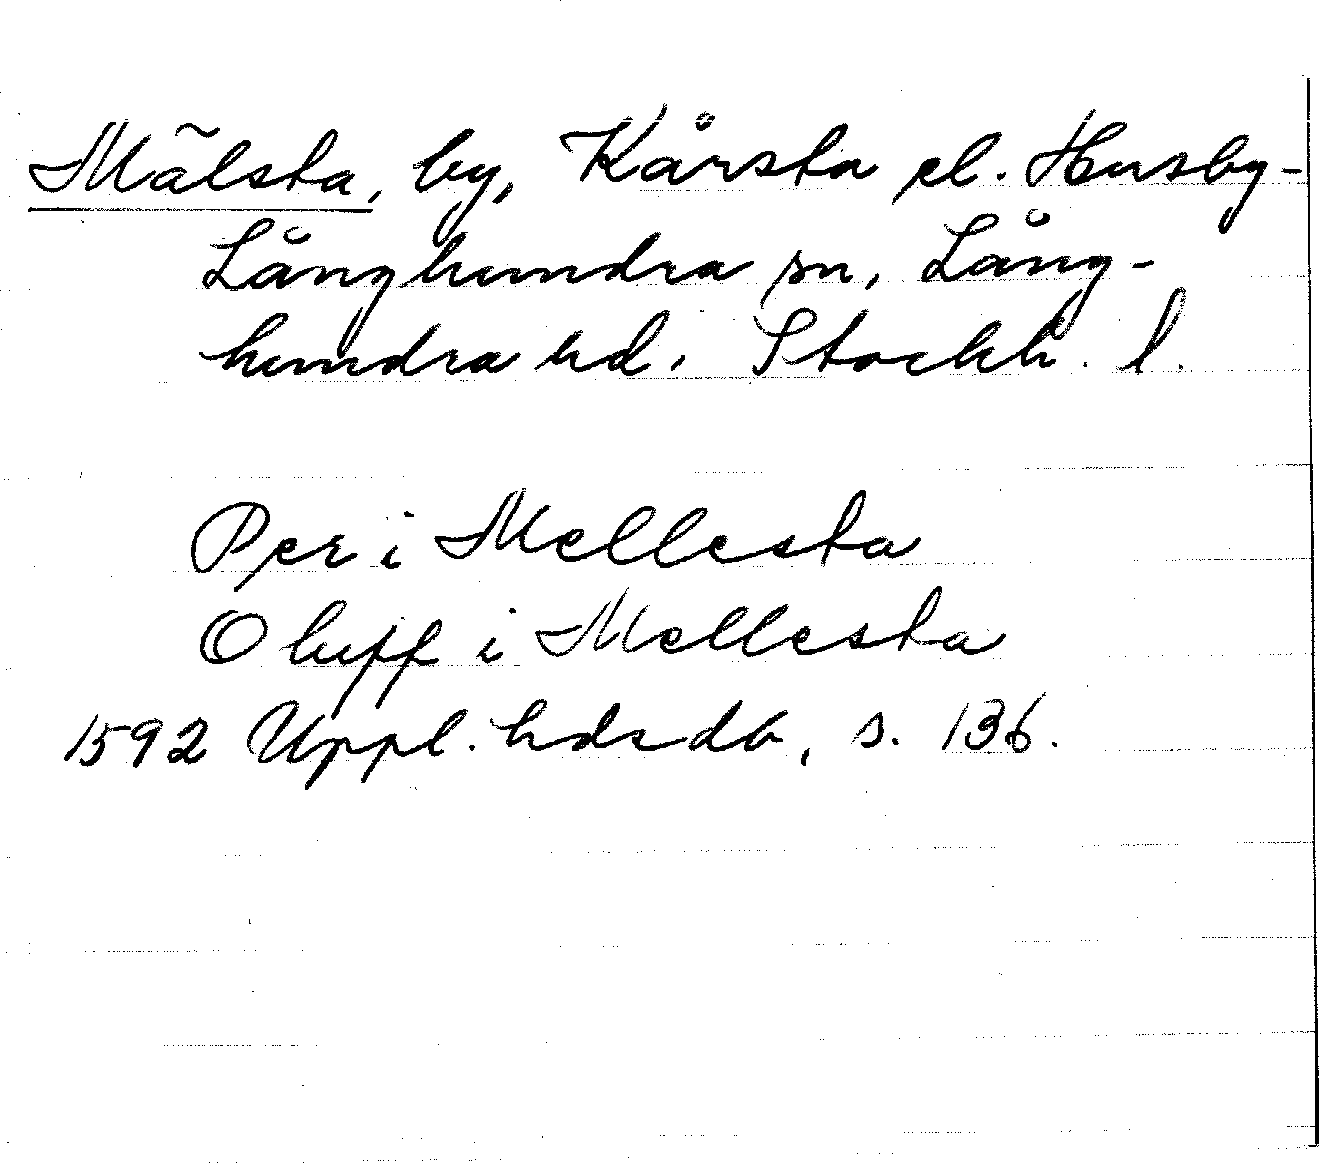 Mälsta, by, Kårsta el. Husby-
Långhundra sn, Lång-
hundra hd. Stockh. l.
Per i Mellesta
Oluff i Mellesta
1592 Uppl. hdsdb, s. 136.